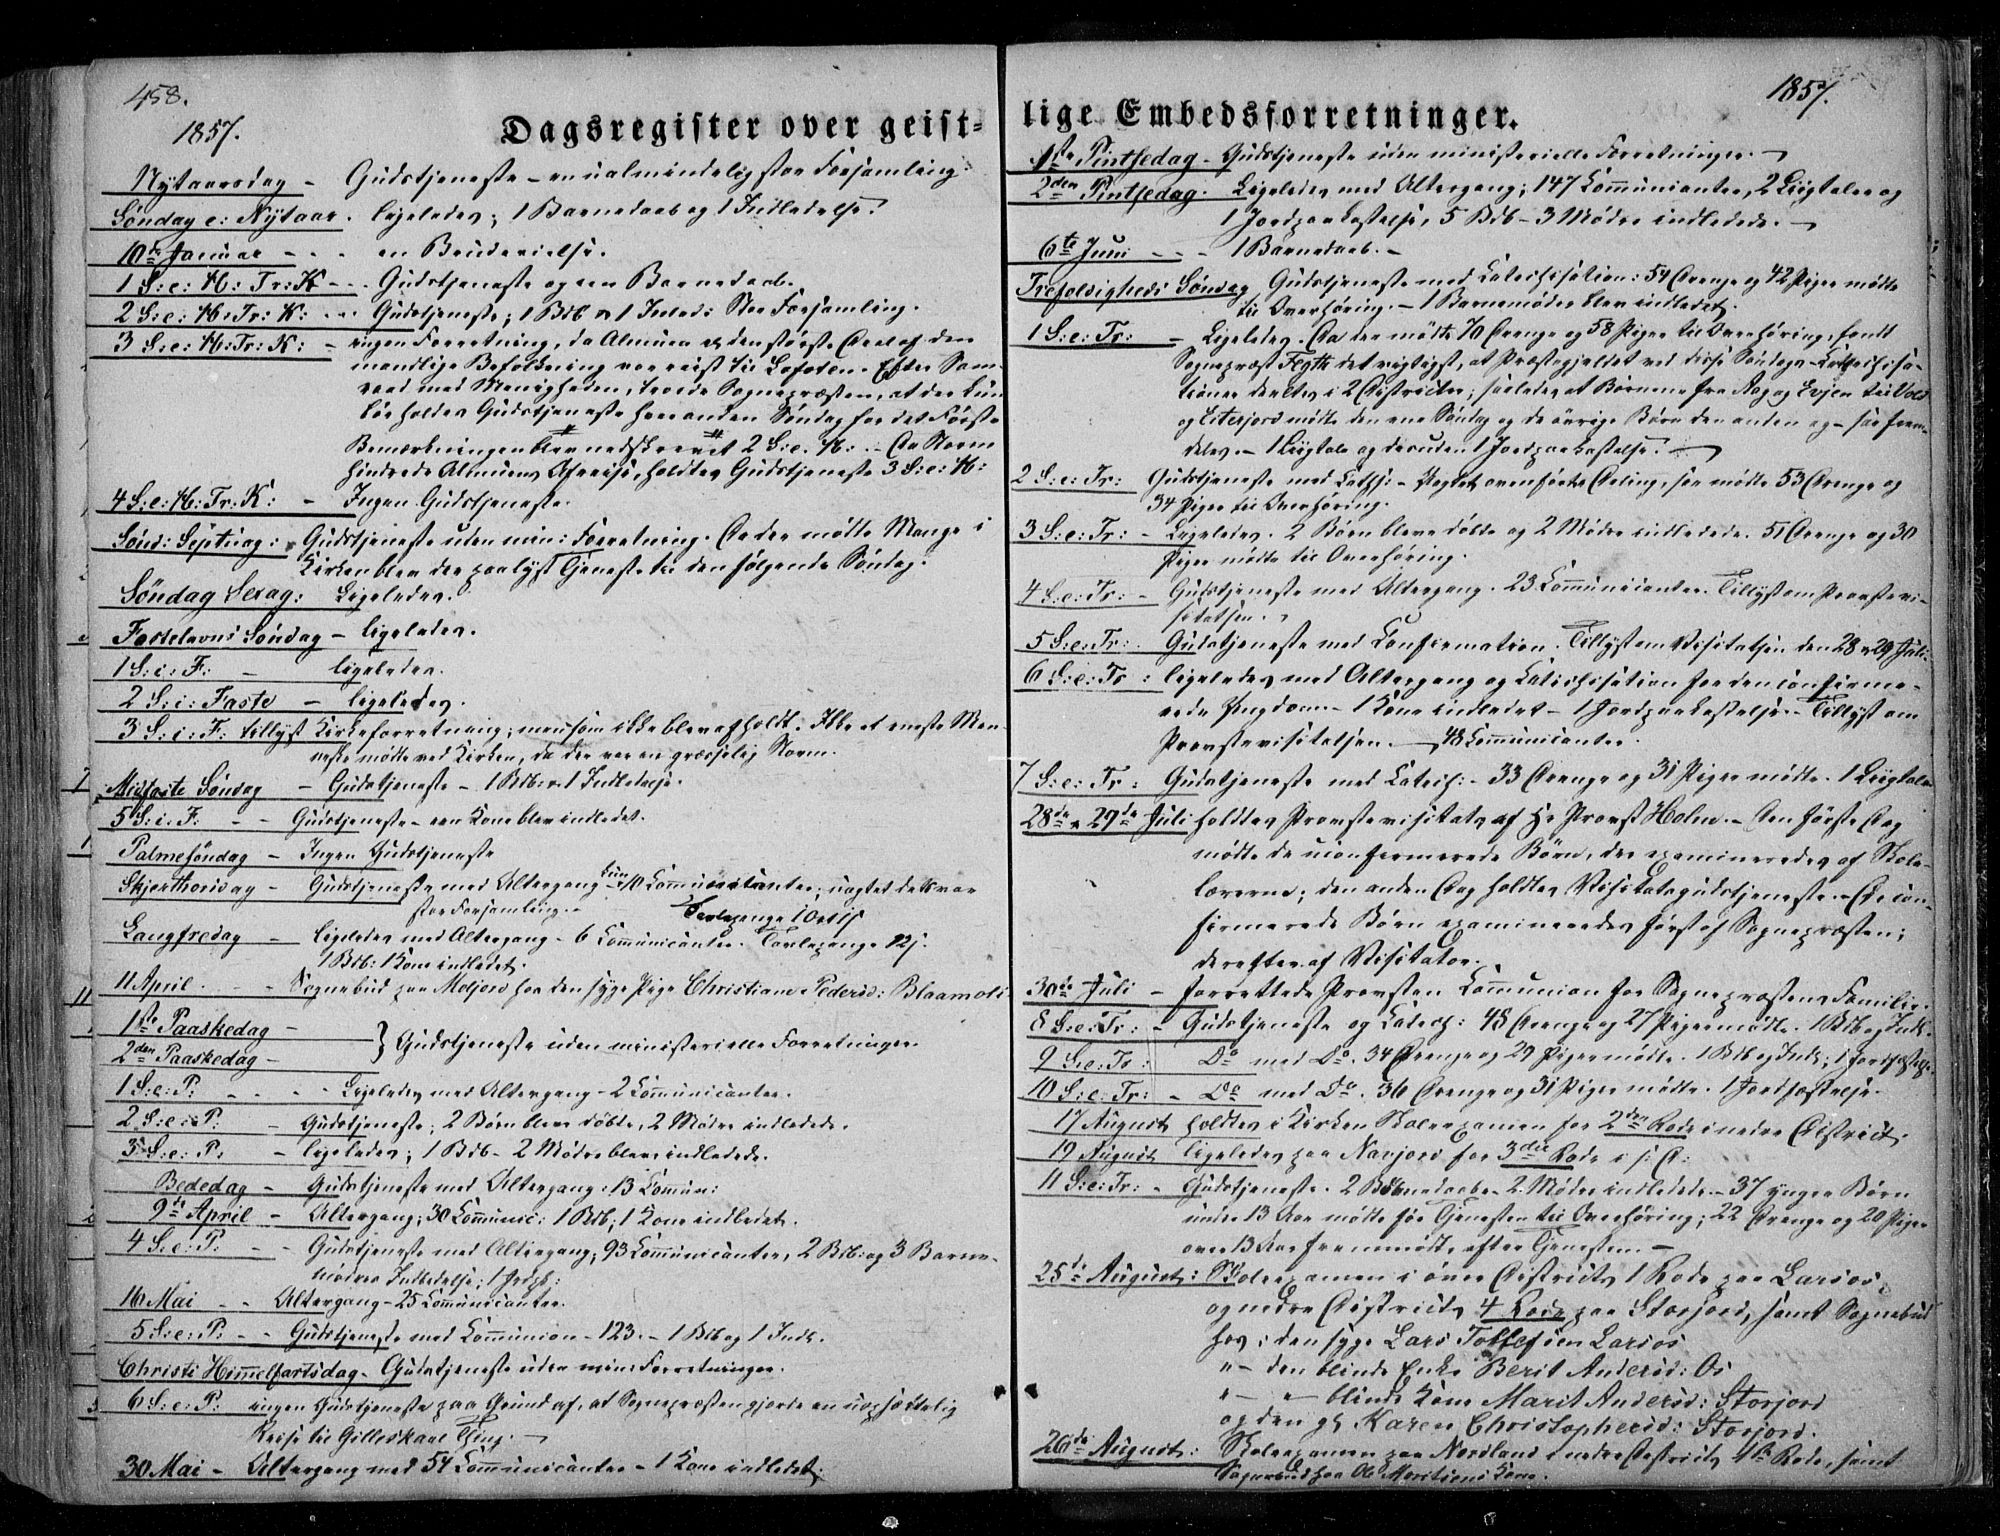 458.
1857.
Dagsregister over geist-
Nytaarsdag - Gudstjeneste - en ualmindelig stor Forsamling.
Søndag e: Nytaar. ligeledes; 1 Barnedaab og 1 Indledelse.
10de Januar - - - en Brudevielse.
1 S: e: H: Tr: K - - . Gudstjeneste og een Barnedaab.
2 S: e: H: Tr: K: - - - Gudstjeneste; 1 Btb & 1 Inled: Stor Forsamling.
3 S: e: H: Tr: K: - ingen Forretning, da Almuen og den største Deel af den
mandlige Befolkning var reist til Lofoten. Efter Sam-
raad med Menigheden, troede Sognepræsten, at der kun
bør holdes Gudstjeneste hver anden Søndag for det Første
Bemærkningen blev nedskrevet 2 S: e. H: - Da Storm
hindrede Almuens Afreise, holdtes Gudstjeneste 3 S: e: H:
4 S: e: H: Tr: K: - Ingen Gudstjeneste.
Sønd: Septuag: Gudstjeneste uden min: Forretning. Da der mødte Mange i
Kirken blev der paalyst Tjeneste til den følgende Søndag.
Søndag Sexag: Ligeledes.
Fastelavns Søndag - ligeledes.
1 S: i: F: - ligeledes.
2 S: i: Faste - ligeledes.
3 S: i: F: tillyst Kirkeforretning, men som ikke blev afholdt. Ikke et eneste Men-
neske mødte ved Kirken, da der var en græsselig Storm.
Midfaste Søndag - Gudstjeneste - 1 Btb: & 1 Indledelse.
5 S: i: F: - - Gudstjeneste - een Kone blev indledet.
Palmesøndag - Ingen Gudstjeneste
Skjerthorsdag - Gudstjeneste med Altergang kun 10 Communicanter; uagtet det var
stor Forsamling. - Tavlepenge
Langfredag - ligeledes med Altergang - 6 Communicanter. Tavlepenge 12 s.
1 Btb: 1 Kone indledet.
11 April. - - Sognebud paa Moljord hos den syge Pige Christiane Pedersd: Blaamoli
1ste Paaskedag -
2den Paaskedag - } Gudstjeneste uden ministerielle Forretninger.
1 S: e: P: - - Ligeledes med Altergang - 2 Communicanter.
2 S: e: P: - Gudstjeneste; 2 Børn bleve døbte, 2 Mødre indledede.
3 S: e: P: - ligeledes; 1 Btb - 2 Mødre bleve indledede.
Bededag - Gudstjeneste med Altergang: 13 Commun:
9de April - Altergang; 30 Communic: 1 Btb; 1 Kone indledet.
4 S: e: P: - - Gudstjeneste med Altergang; 93 Communicanter, 2 Btb: og 3 Barne-
mødres Indledelse; 1 Jordpk:
16 Mai - - Altergang - 25 Communicanter.
5 S: e: P: - - Gudstjeneste med Communion - 123. - 1 Btb og 1 Indl.
Christi Himmelfartsdag - Gudstjeneste uden min: Forretninger.
6 S: e: P: ingen Gudstjeneste paa Grund af, at Sognepræsten gjorde en uopsættelig
Reise til Gilleskaal Thing. -
30 Mai - Altergang med 54 Communicanter - 1 Kone indledet.
1857.
lige Embedsforretninger.
1ste Pintsedag - Gudstjeneste uden ministerielle Forretninger. -
2den Pintsedag. Ligeledes med Altergang; 147 Communicanter, 2 Liigtaler og
1 Jordpaakastelse, 5 Btb - 3 Mødre indledede. -
6te Juni - - - 1 Barnedaab. -
Trefoldigheds Søndag Gudstjeneste med Catechisation: 54 Drenge og 42 Piger mødte
til Overhøring. - 1 Barnemoder blev indledet.
1 S: e: Tr: - Ligeledes. Da der mødte 70 Drenge og 58 Piger til Overhøring, fandt
Sognepræst Flyth det rigtigst, at Præstegjeldet ved disse Søndags-Catechisa-
tioner deeltes i 2 Districter; saaledes at Børnene fra Aag og Evjen til Vold
og Eiterjord mødte den ene Søndag og de øvrige Børn den anden og - saa frem-
deles. - 1 Liigtale og desuden 1 Jordpaakastelse. -
2 S: e: Tr: Gudstjeneste med Catch: - uagtet ovenførte Deling, saa mødte 53 Drenge og
34 Piger til Overhøring.
3 S: e: Tr: - Ligeledes. 2 Børn bleve døbte og 2 Mødre indledede. 51 Drenge og 30
Piger mødte til Overhøring.
4 S: e: Tr: - Gudstjeneste med Altergang. 23 Communicanter. Tillyst om Provstevi-
sitatsen.
5 S: e: Tr: Gudstjeneste med Confirmation. Tillyst om Visitatsen den 28 & 29 Juli.
6 S: e: Tr: ligeledes med Altergang og Catechisation for den confirme-
rede Ungdom. - 1 Kone indledet - 1 Jordpaakastelse. - Tillyst om
Provstevisitatsen. - 48 Communicanter.
7 S: e: Tr: Gudstjeneste med Catech: - 33 Drenge og 31 Piger mødte. 1 Liigtale
28de & 29de Juli holdtes Provstevisitats af Hr Provst Holm. - Den første Dag
mødte de uconfirmerede Børn, der examineredes af Skole-
lærerne; den anden Dag holdtes Visitatsgudstjeneste. - De con-
firmerede Børn examineredes først af Sognepræsten;
derefter af Visitator.
30de Juli - forrettede Provsten Communion for Sognepræstens Familie.
8 S: e: Tr: - Gudstjeneste og Catech: 48 Drenge og 27 Piger mødte. 1 Btb og Indl.
9 S: e: Tr: Do med Do. 34 Drenge og 29 Piger mødte. 1 Btb og Indl; 1 Jordfæstelse.
10 S: e: Tr: - Do med Do. 36 Drenge og 31 Piger mødte. 1 Jordfæstelse.
17 August holdtes i Kirken Skoleexamen for 2den Rode i nedre District.
19 August ligeledes paa Navjord for 3die Rode i s: D:
11 S: e: Tr: - Gudstjeneste. 2 Barnedaabe - 2 Mødre indledede. - 37 yngre Børn
under 13 Aar mødte før Tjenesten til Overhøring; 22 Drenge og 20 Piger
over 13 Aar fremmødte efter Tjenesten. -
25de August: Skoleexamen i øvre Districts 1 Rode paa Larsos
og nedre Districts 4 Rode paa Storjord, samt Sognebud
hos: den syge Lars Tollefsen Larsos
" - den blinde Enke Berit Andersd: Os
" - " - blinde Kone Marit Andersd: Storjord
og den gl Karen Christophersd: Storjord.
26de August: Skoleexamen paa Nordland i nedre Districts 1ste Rode, samt
Sognebud hos Ole Mortensens Kone.